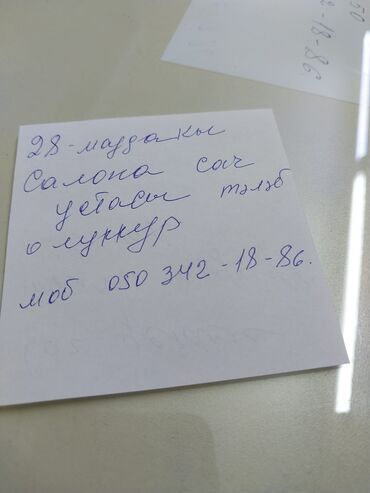 28-майдакы
Салона сач
устасы тәләб
олуннур
моб 050 342-18-86.
50
2-18-86